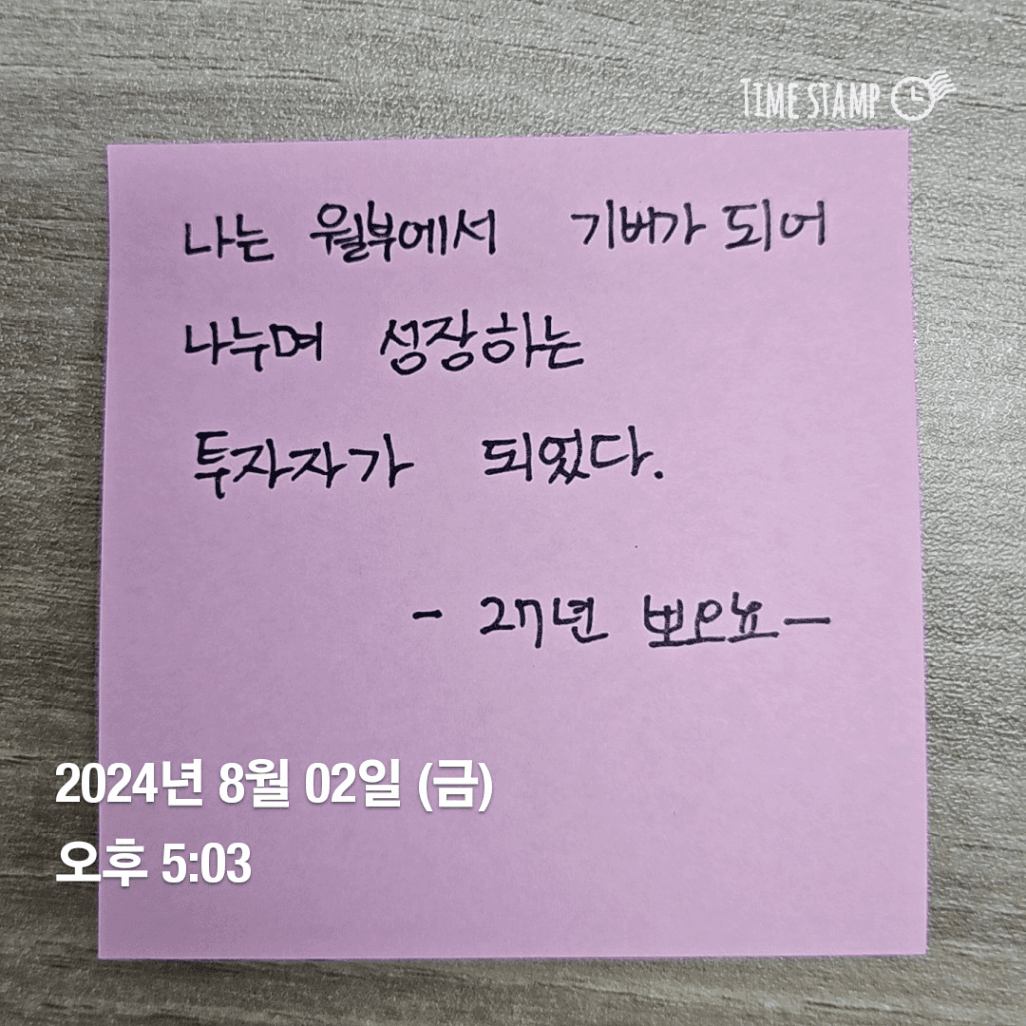 TIME STAMP
나는 월부에서 기버가 되어
나누며 성장하는
투자자가 되었다.
- 27년 뽀오뇨 -
2024년 8월 02일 (금)
오후 5:03